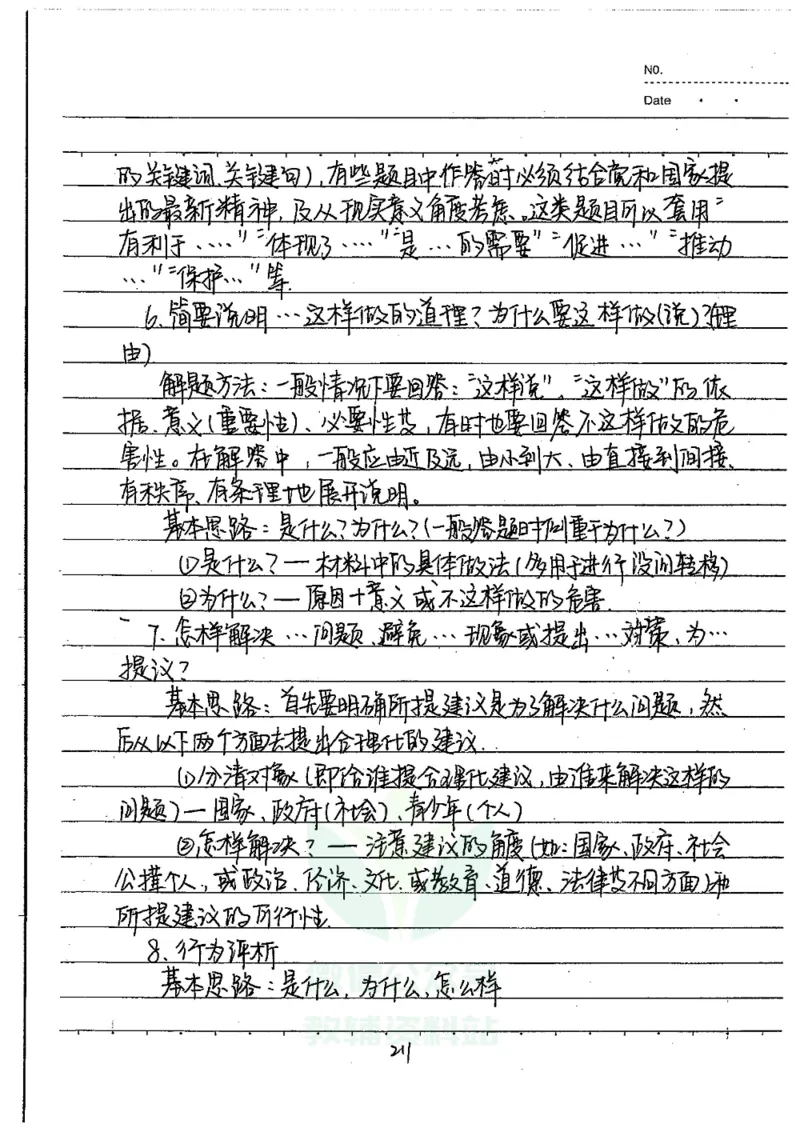 NO.
Date
的关键词、关键句),有些题目中作答时必须结合党和国家提
出的最新精神,及从现实意义角度考虑。这类题目可以套用“
有利于……”“体现了……”“是…的需要”“促进…”“推动
…”“保护…”等.
6、简要说明…这样做的道理?为什么要这样做(说)?(理
由)
解题方法:一般情况下要回答:“这样说”、“这样做”的依
据、意义(重要性)、必要性等,有时也要回答不这样做的危
害性。在解答中,一般应由近及远,由小到大、由直接到间接、
有秩序、有条理地展开说明。
基本思路:是什么?为什么?(一般答题时侧重于为什么?)
①是什么?—材料中的具体做法(多用于进行设问转移)
②为什么?—原因+意义或不这样做的危害.
7、怎样解决…问题、避免…现象或提出…对策、为…
提议?
基本思路:首先要明确所提建议是为了解决什么问题,然
后从以下两个方面去提出合理化的建议.
①分清对象(即给谁提合理化建议,由谁来解决这样的
问题)—国家、政府(社会)、青少年(个人)
②怎样解决?—注意建议的角度(如:国家、政府、社会
公横个人,或政治、经济、文化、或教育、道德、法律等不同方面)和
所提建议的可行性.
8、行为评析
基本思路:是什么,为什么,怎么样
教辅资料站
211